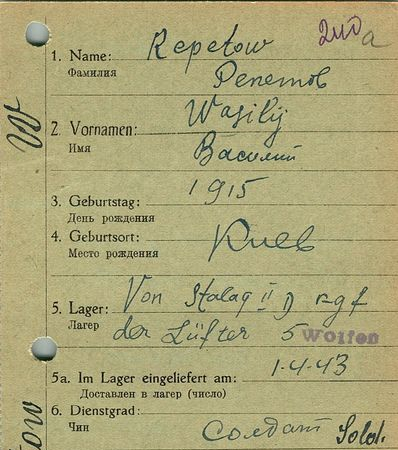 a
1. Name: Repetow
Фамилия Репетов
2. Vornamen: Wasilij
Имя Василий
1915
3. Geburtstag:
День рождения
4. Geburtsort: Киев
Место рождения
5. Lager: Von Stalag II D
Лагерь der Lüfter 5 Wolfen
5a. Im Lager eingeliefert am: 1-4-43
Доставлен в лагер (число)
6. Dienstgrad:
Чин Солдат Sold.